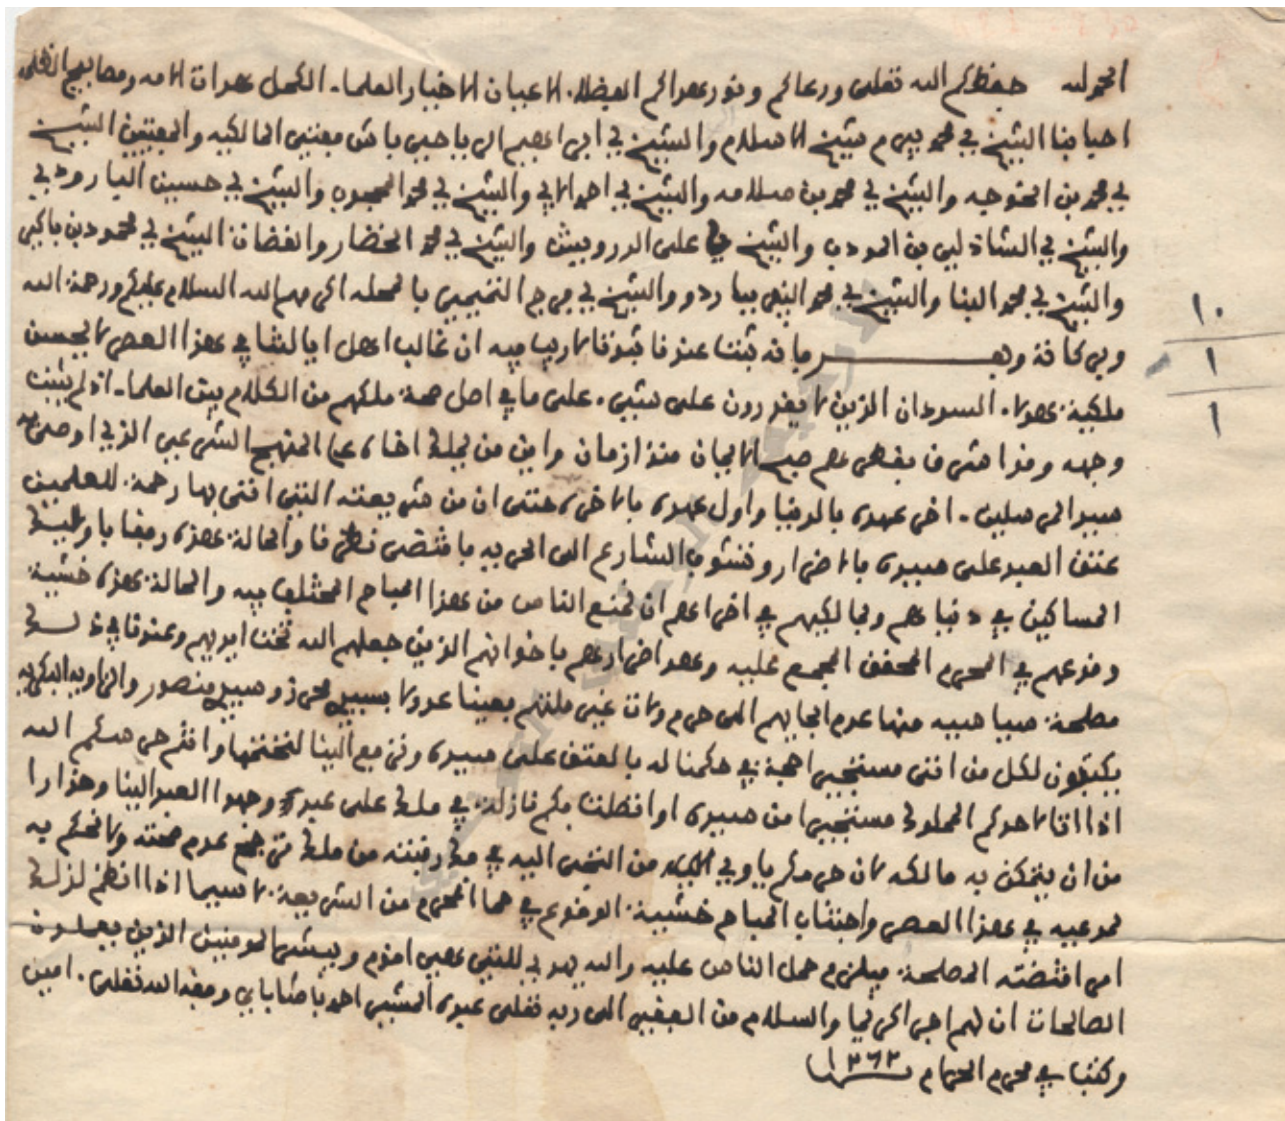 الحمد لله حفظكم الله تعلى ورعاكم ونور هداكم الفضلاء الاعيان الاخيار العلماء الكمل هداة الامة ومصابيح الظلم
احبابنا الشيخ سي محمد بيرم شيخ الاسلام والشيخ سي ابراهيم الرياحي باش مفتي المالكية والمفتيين الشيخ
سي محمد بن الخوجه والشيخ سي محمد بن سلامه والشيخ سي احمد الابي والشيخ سي محمد المحجوب والشيخ سي حسين البارودي
والشيخ سي الشاذلي بن المودب والشيخ سي على الدرويش والشيخ سي محمد الخضار والقضاة الشيخ سي محمود بن باكير
والشيخ سي محمد البنا والشيخ سي محمد النيفر بباردو والشيخ سي فرج التميمي بالمحلة اكرمهم الله السلام عليكم ورحمة الله
وبركاته وبعد فانه ثبت عندنا ثبوتا لا ريب فيه ان غالب اهل ايالتنا في هذا العصر لا يحسن
ملكية هولاء السودان الذين لا يقدرون على شيء على ما في اصل صحة ملكهم من الكلام بين العلماء اذ لم يثبت
وجهه وقد اشرق بقطرهم صبح الايمان منذ ازمان واين من يملك اخاه على المنهج الشرعي الذي اوصى به
سيد المرسلين اخر عهده بالدنيا واول عهده بالاخرى حتى ان من شريعته التي اتى بها رحمة للعلمين
عتق العبد على سيده بالاضرار وتشوف الشارع الى الحرية فاقتضى نظرنا والحالة هذه رفقا باولئك
المساكين في دنياهم وبمالكيهم في اخراهم ان نمنع الناس من هذا المباح المختلف فيه والحالة هذه خشية
وقوعهم في المحرم المحقق المجمع عليه وهو اضرارهم باخوانهم الذين جعلهم الله تحت ايديهم وعندنا في ذلك
مصلحة سياسية منها عدم الجايهم الى حرم ولاة غير ملتهم فعينا عدولا بسيدي محرز وسيدي منصور والزاوية البكرية
يكتبون لكل من اتى مستجيرا حجة في حكمنا له بالعتق على سيده وترفع الينا لنختمها وانتم حرسكم الله
اذا اتى لاحدكم المملوك مستجيرا من سيده او اتصلت بكم نازلة في ملك على عبد وجهوا العبد الينا وحذارا
من ان يتمكن به مالكه لان حرمكم ياوي من التجى اليه في فك رقبته من ملك ترجح عدم صحته ولا نحكم به
لمدعيه في هذا العصر واجتناب المباح خشية الوقوع في المحرم من الشريعة لا سيما اذا انضم لذلك
امر اقتضته المصلحة فيلزم حمل الناس عليه والله يهدي للتي هي اقوم ويبشر المومنين الذين يعملون
الصالحات ان لهم اجرا كريما والسلام من الفقير الى ربه تعلى عبده المشير احمد باشا باي وفقه الله تعلى امين
وكتب في محرم الحرام ١٢٦٢
١٠
١
١